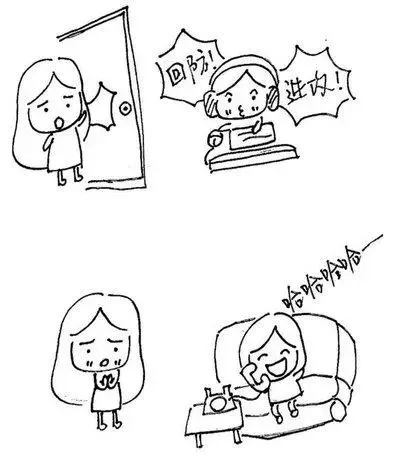 回防!
进攻!
哈哈哈哈